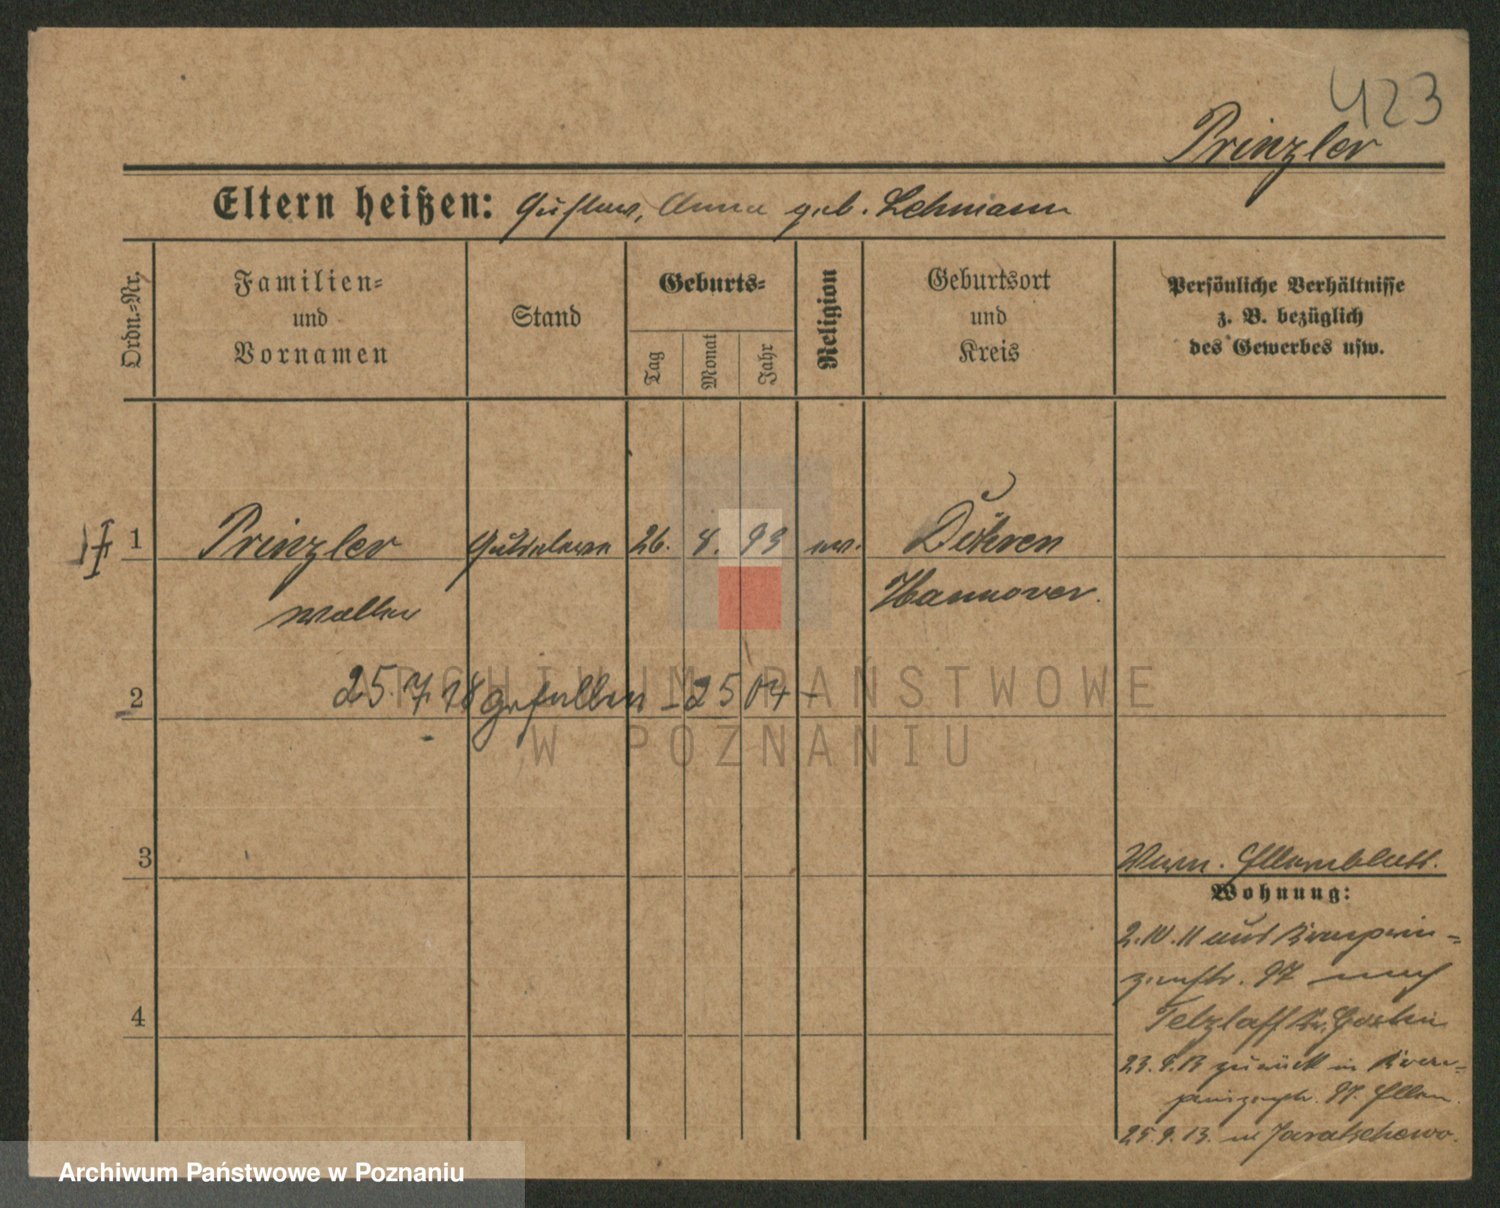 423
Prinzler
Eltern heißen: Gustav, Anna geb. Lehmann
Ordn.-Nr.
Familien-
und
Vornamen
Stand
Geburts-
Tag
Monat
Jahr
Religion
Geburtsort
und
Kreis
Persönliche Verhältnisse
z. B. bezüglich
des Gewerbes usw.
1 Prinzler 26. 8. 93 ev. Döhren
Walter Hannover.
2 25.7.18 gefallen - 2504 -
3
Wohnung:
2.10.11 aus Kronprin-
zenstr. 97 nach
4 Tetzlaff Kr. Gostin
23.9.13 zurück in Kron-
prinzenstr. 97. Eltern.
25.9.13. n. Jaratschewo.
ARCHIWUM PAŃSTWOWE
W POZNANIU
Archiwum Państwowe w Poznaniu